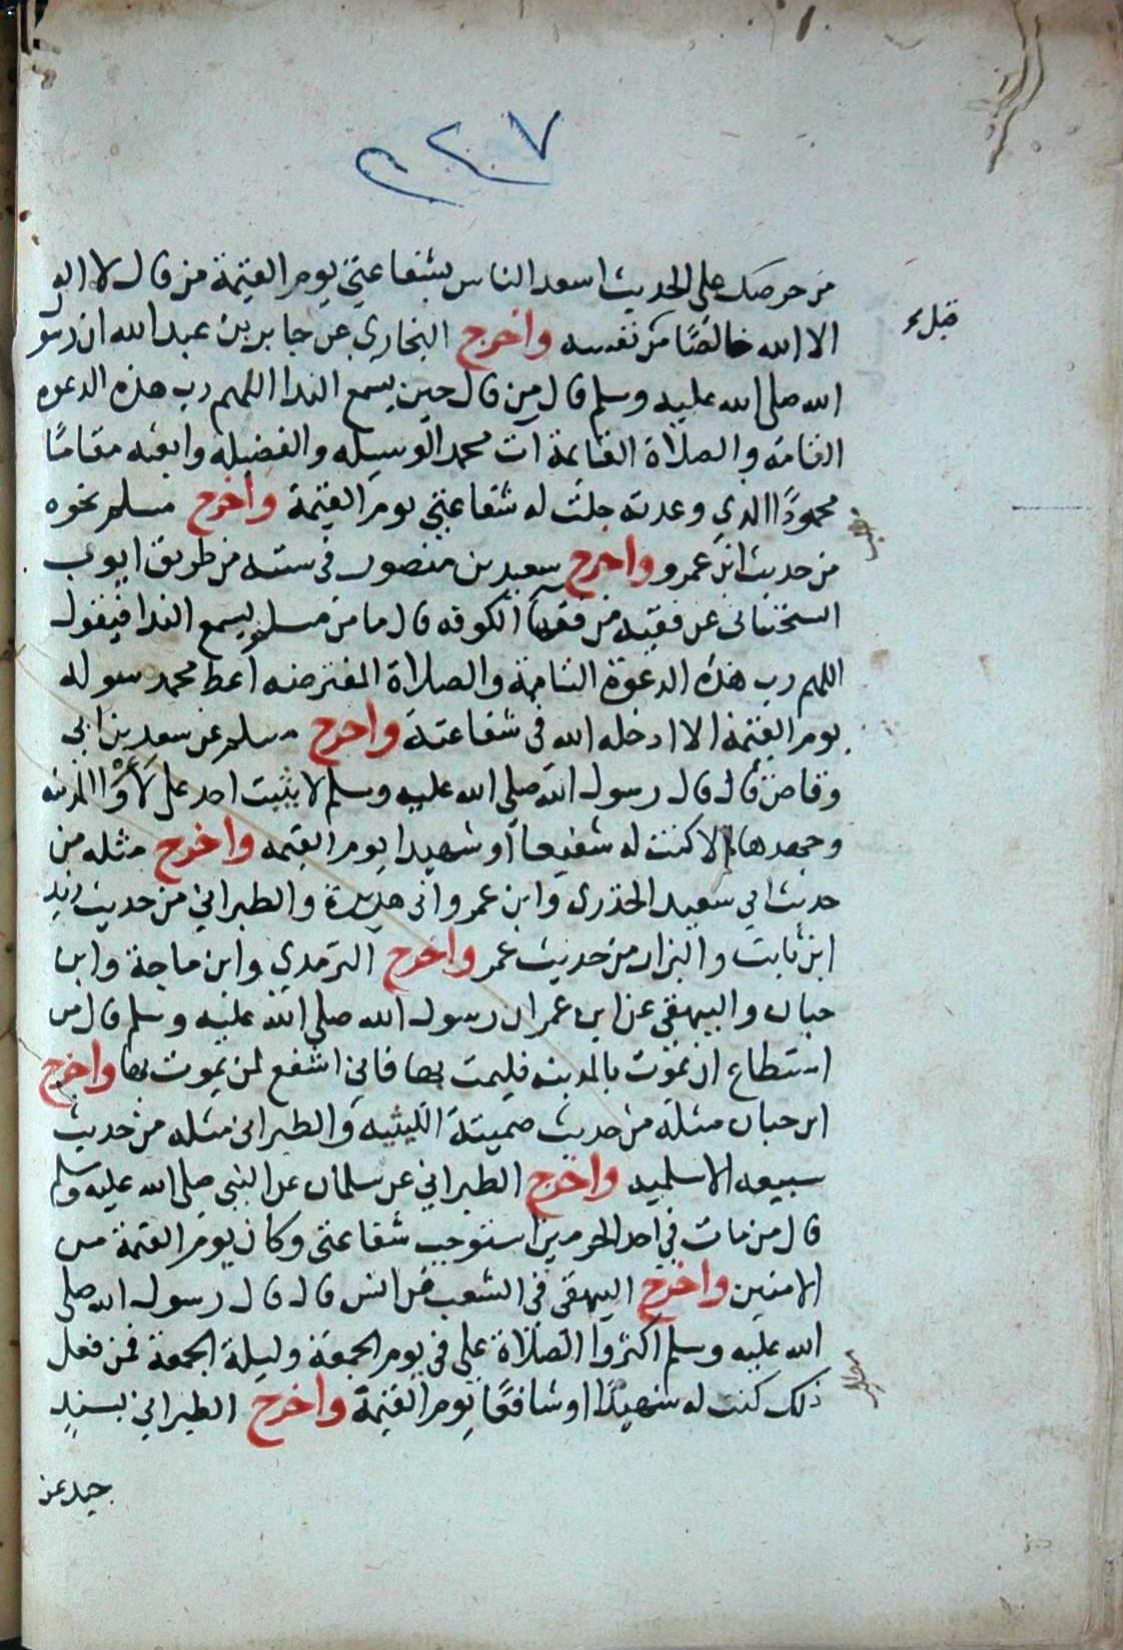 ٢٢٧
من حرصك على الحديث اسعد الناس بشفاعتي يوم القيمة من قال لا اله
الا الله خالصًا من نفسه واخرج البخاري عن جابر بن عبد الله ان رسول
الله صلى الله عليه وسلم قال من قال حين يسمع الندا اللهم رب هذه الدعوه
التامة والصلاة القايمة آت محمد الوسيله والفضيلة وابعثه مقامًا
محمودًا الذي وعدته حلت له شفاعتي يوم القيمة واخرج مسلم نحوه
من حديث ابن عمرو واخرج سعيد بن منصور في سننه من طريق ايوب
السختياني عن فقيه من فقهآ الكوفه قال ما من مسلم يسمع الندا فيقول
اللهم رب هذه الدعوة التامة والصلاة المفترضه اعط محمد سوله
يوم القيمة الا ادخله الله في شفاعته واخرج مسلم عن سعد بن ابي
وقاص قال قال رسول الله صلى الله عليه وسلم لا يثبت احد على لأوا المدينه
وجهدها الا كنت له شفيعا او شهيدا يوم القيمه واخرج مثله من
حديث ابي سعيد الخدري وابن عمر وابي هريرة والطبراني من حديث زيد
ابن ثابت والبزار من حديث عمر واخرج الترمدي وابن ماجة وابن
حبان والبيهقي عن ابن عمر ان رسول الله صلى الله عليه وسلم قال من
استطاع ان يموت بالمدينه فليمت بها فاني اشفع لمن يموت بها واخرج
ابن حبان مثله من حديث صميتة الليثيه والطبراني مثله من حديث
سبيعه الاسلميه واخرج الطبراني عن سلمان عن النبي صلى الله عليه وسلم
قال من مات في احد الحرمين استوجب شفاعتي وكان يوم القيمة من
الامنين واخرج البيهقي في الشعب عن انس قال قال رسول الله صلى
الله عليه وسلم اكثروا الصلاة علي في يوم الجمعة وليلة الجمعة فمن فعل
ذلك كنت له شهيدًا او شافعًا يوم القيمة واخرج الطبراني بسند
جيد عن